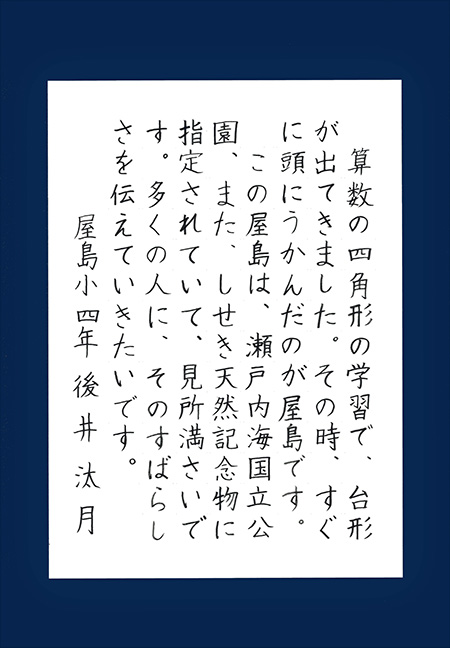 算数の四角形の学習で、台形
が出てきました。その時、すぐ
に頭にうかんだのが屋島です。
この屋島は、瀬戸内海国立公
園、また、しせき天然記念物に
指定されていて、見所満さいで
す。多くの人に、そのすばらし
さを伝えていきたいです。
屋島小四年 後井汰月